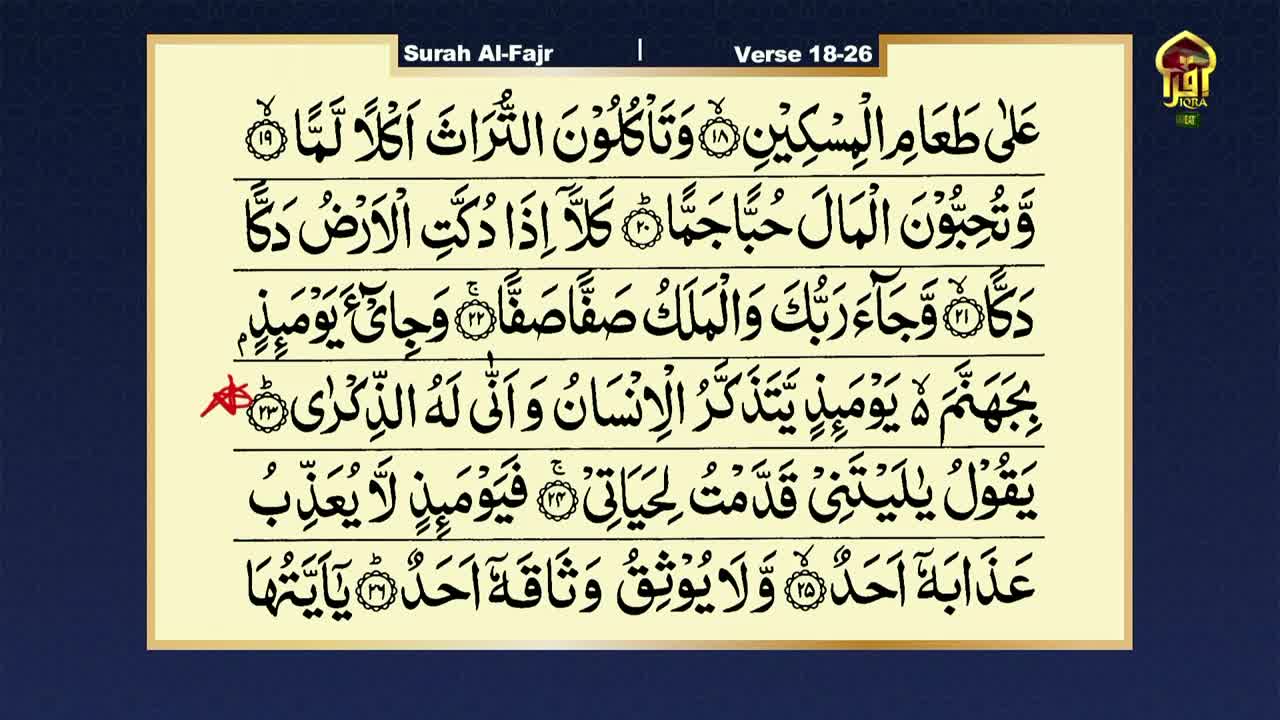 Surah Al-Fajr | Verse 18-26
IQRA
عَلٰى طَعَامِ الْمِسْكِيْنِ ۙ‏﴿۱۸﴾ وَتَاْكُلُوْنَ التُّرَاثَ اَكْلًا لَّمًّا ۙ‏﴿۱۹﴾
وَّتُحِبُّوْنَ الْمَالَ حُبًّا جَمًّا ؕ‏﴿۲۰﴾ كَلَّاۤ اِذَا دُكَّتِ الْاَرْضُ دَكًّا
دَكًّا ۙ‏﴿۲۱﴾ وَّجَآءَ رَبُّكَ وَالْمَلَكُ صَفًّا صَفًّا ۚ‏﴿۲۲﴾ وَجِایْٓءَ يَوْمَئِذٍۭ
بِجَهَنَّمَ ۙ۬ يَوْمَئِذٍ يَّتَذَكَّرُ الْاِنْسَانُ وَاَنّٰى لَهُ الذِّكْرٰى ؕ‏﴿۲۳﴾
يَقُوْلُ يٰلَيْتَنِیْ قَدَّمْتُ لِحَيَاتِیْ ۚ‏﴿۲۴﴾ فَيَوْمَئِذٍ لَّا يُعَذِّبُ
عَذَابَهٗۤ اَحَدٌ ۙ‏﴿۲۵﴾ وَّلَا يُوْثِقُ وَثَاقَهٗۤ اَحَدٌ ؕ‏﴿۲۶﴾ يٰۤاَيَّتُهَا